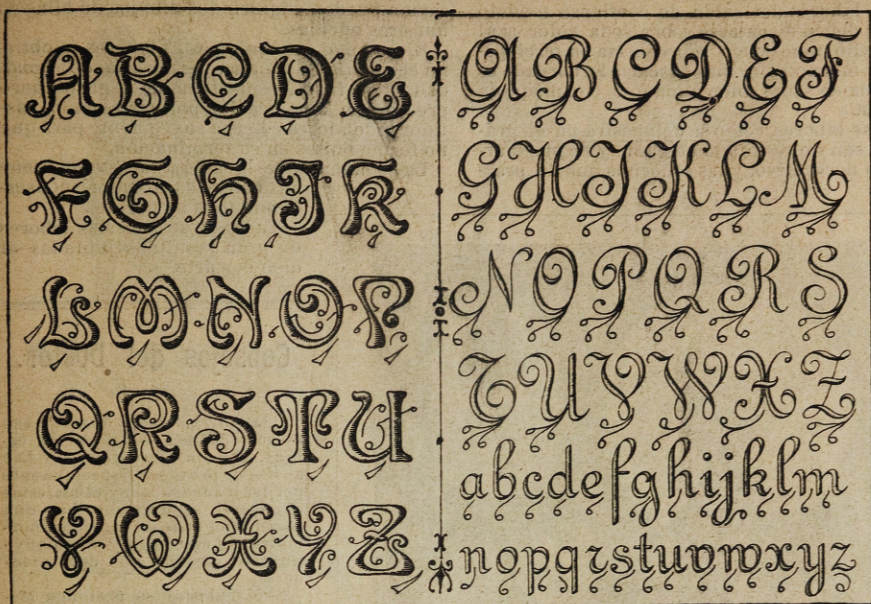 A B C D E
F G H I K
L M N O P
Q R S T U
V W X Y Z
A B C D E F
G H I K L M
N O P Q R S
T U V W X Z
a b c d e f g h i j k l m
n o p q r s t u v w x y z